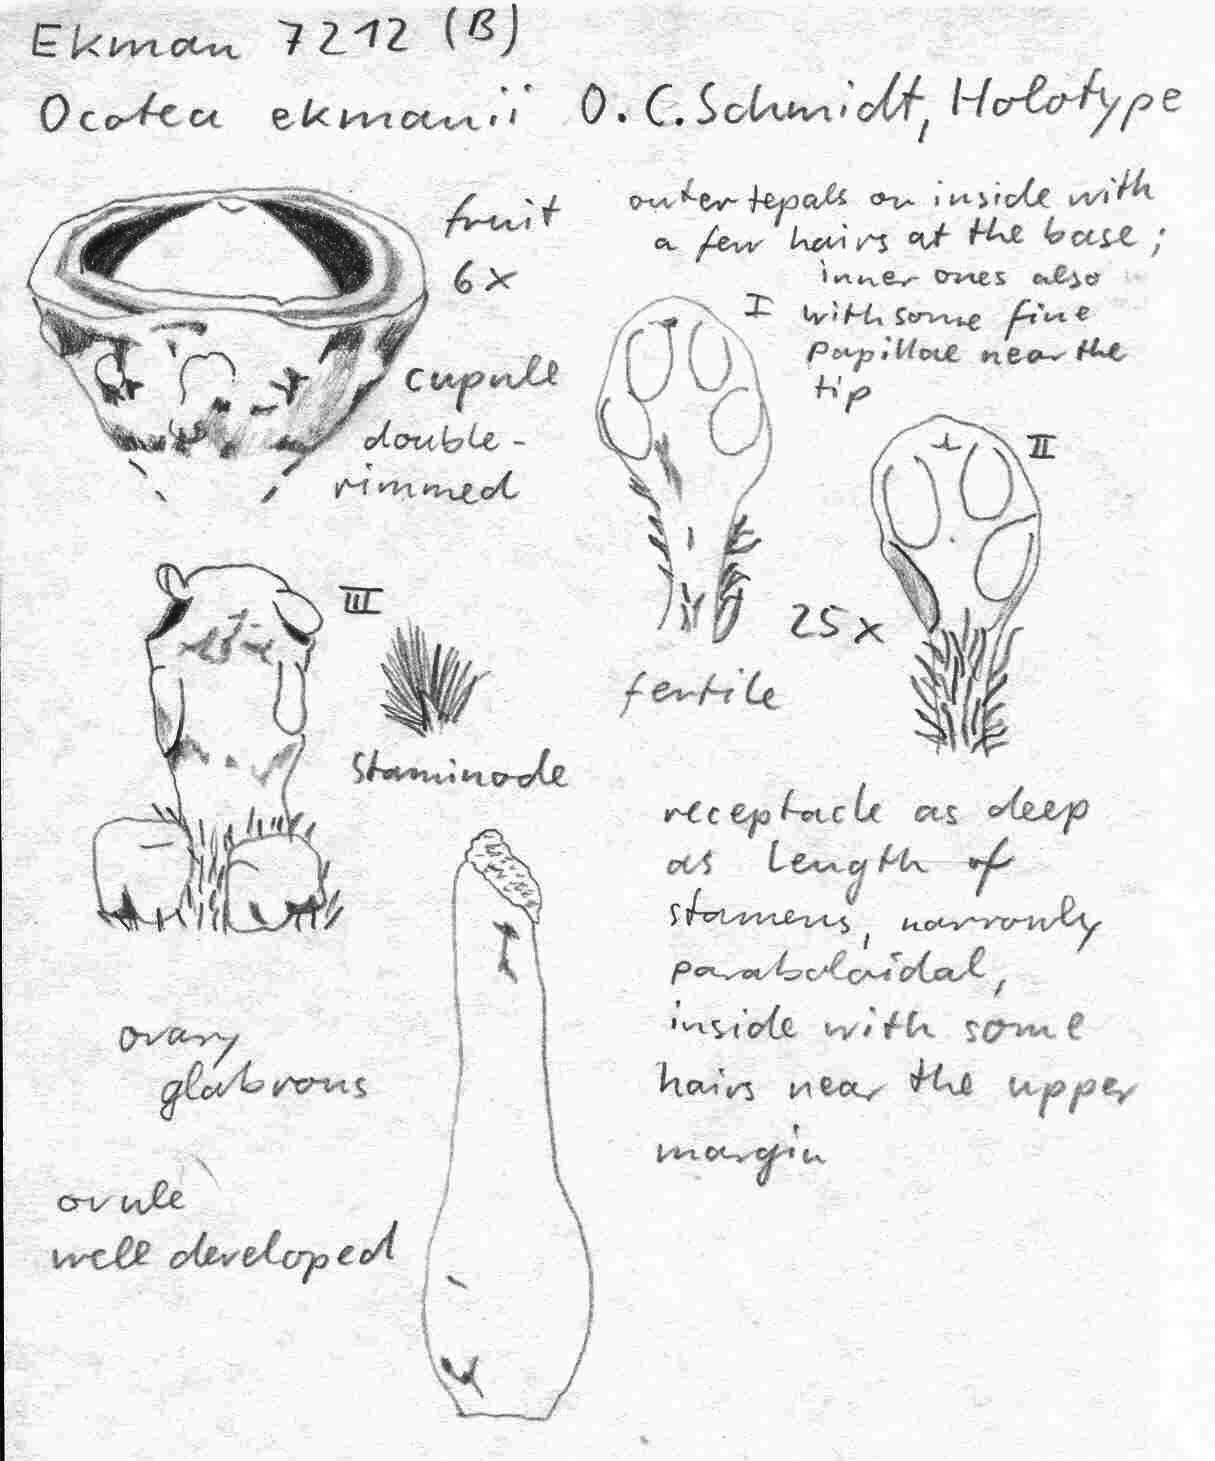 Ekman 7212 (B)
Ocotea ekmanii O.C. Schmidt, Holotype
fruit
6x
cupule
double-
rimmed
outer tepals on inside with
a few hairs at the base;
inner ones also
with some fine
papillae near the
tip
I
II
25x
fertile
III
staminode
receptacle as deep
as length of
stamens, narrowly
paraboloidal,
inside with some
hairs near the upper
margin
ovary
glabrous
ovule
well developed